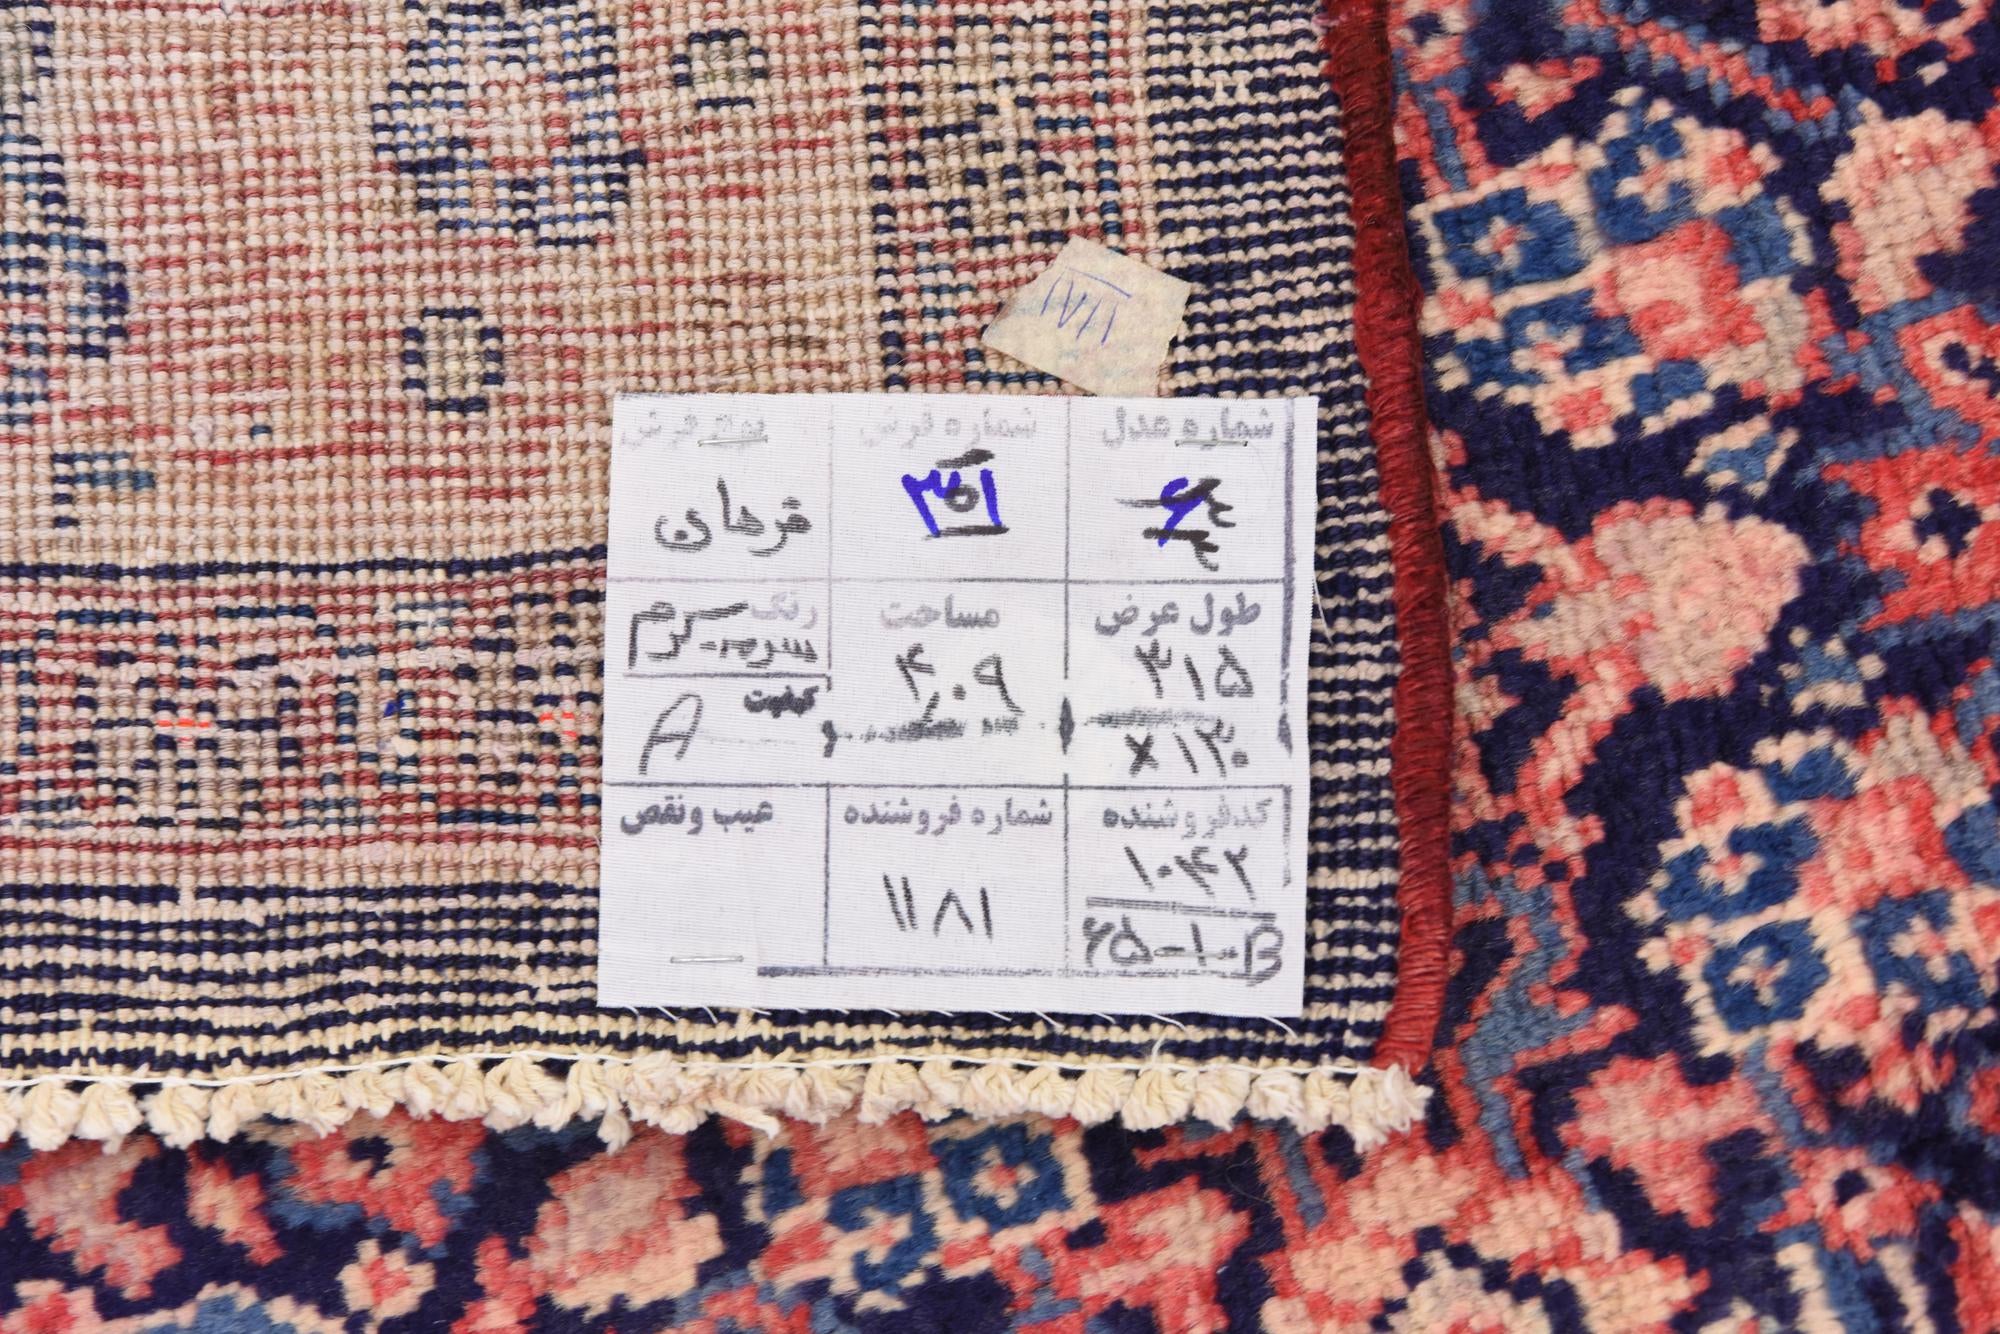 ۱۱۸۱
شماره عدل
شماره فرش
نوع فرش
۶
۳۵۱
فرهان
طول عرض
مساحت
رنگ
۳۱۵
× ۱۳۰
۴٫۰۹
سرمه کرم
کیفیت
A
کدفروشنده
شماره فروشنده
عیب ونقص
۱۰۴۲
۱۱۸۱
۶۵-۱-B